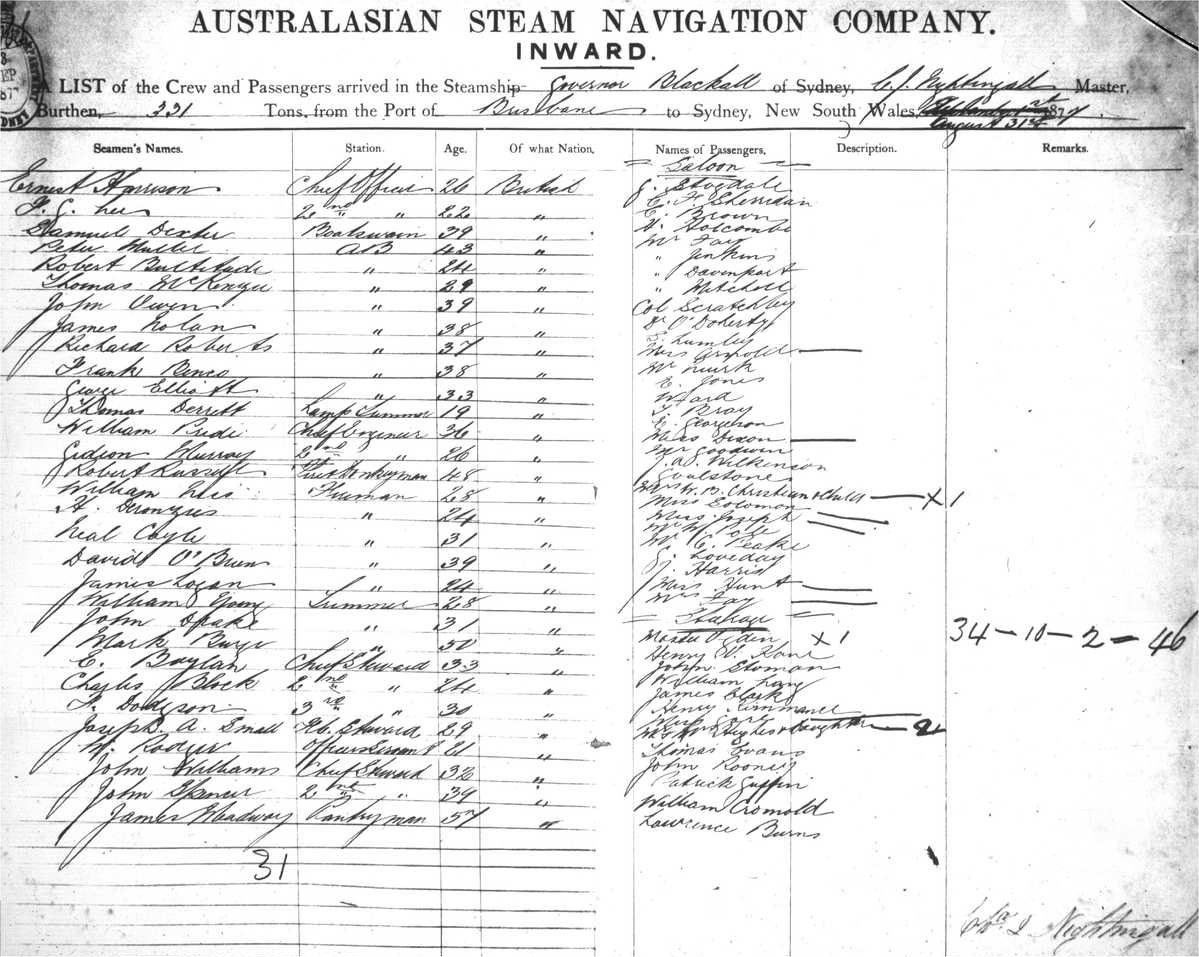 AUSTRALASIAN STEAM NAVIGATION COMPANY.
INWARD.
A LIST of the Crew and Passengers arrived in the Steamship Governor Blackall of Sydney, C. J. Nightingall Master,
Burthen, 331 Tons, from the Port of Brisbane to Sydney, New South Wales, September 1st 1877
August 31st
Seamen's Names. Station. Age. Of what Nation. Names of Passengers, Description. Remarks.
Saloon
Ernest Harrison Chief Officer 26 British
F. G. Lee 2nd " 22 "
Samuel Dexter Boatswain 39 "
Peter Muller AB 43 "
Robert Bultitude " 24 "
Thomas McKenzie " 29 "
John Owen " 39 "
James Nolan " 38 "
Richard Roberts " 37 "
Frank " 38 "
George Elliott " 33 "
Thomas Derrett Lamp Trimmer 19 "
William Pride Chief Engineer 36 "
Gideon Murray 2nd " 26 "
Robert Russell Donkeyman 48 "
William Fireman 28 "
H. " 24 "
Neal Coyle " 31 "
David O'Brien " 39 "
James Logan " 24 "
William Young Trimmer 28 "
John Drake " 31 "
Mark " 50 "
E. Boylan Chief Steward 33 "
Charles Block 2nd " 24 "
F. Dodgson 3rd " 30 "
Joseph A. Small Steward 29 "
W. Officers Servant 21 "
John Williams Chief Steward 32 "
John Spencer 2nd " 39 "
James Pantryman 57 "
31
J. Stogdale
E. F. Sherridan
E. Brown
Holcombe
Mr Fox
" Jenkins
" Davenport
" Mitchell
Col Scratchley
Dr O'Doherty
Lumley
Miss Arnold
Mr
E. Jones
Ward
T. Bray
E. Georgeson
Miss Dixon
Mr Goodwin
J. A. Wilkinson
Goalstone
Mrs W. B. Christian & Child X 1
Miss Solomon
Miss Joseph
Mr W. Pole
Mr C. Peake
J. Loveday
J. Harris
Miss Hunt
Mrs Fox
Steerage
Master Oden X 1
Henry W. Kane
John Stoman
William Lang
James Clark
Henry Rimmance
Mrs Hughes & Daughter 2
Thomas Evans
John Rooney
Patrick Griffin
William Cromold
Lawrence Burns
34 - 10 - 2 = 46
Chas J Nightingall